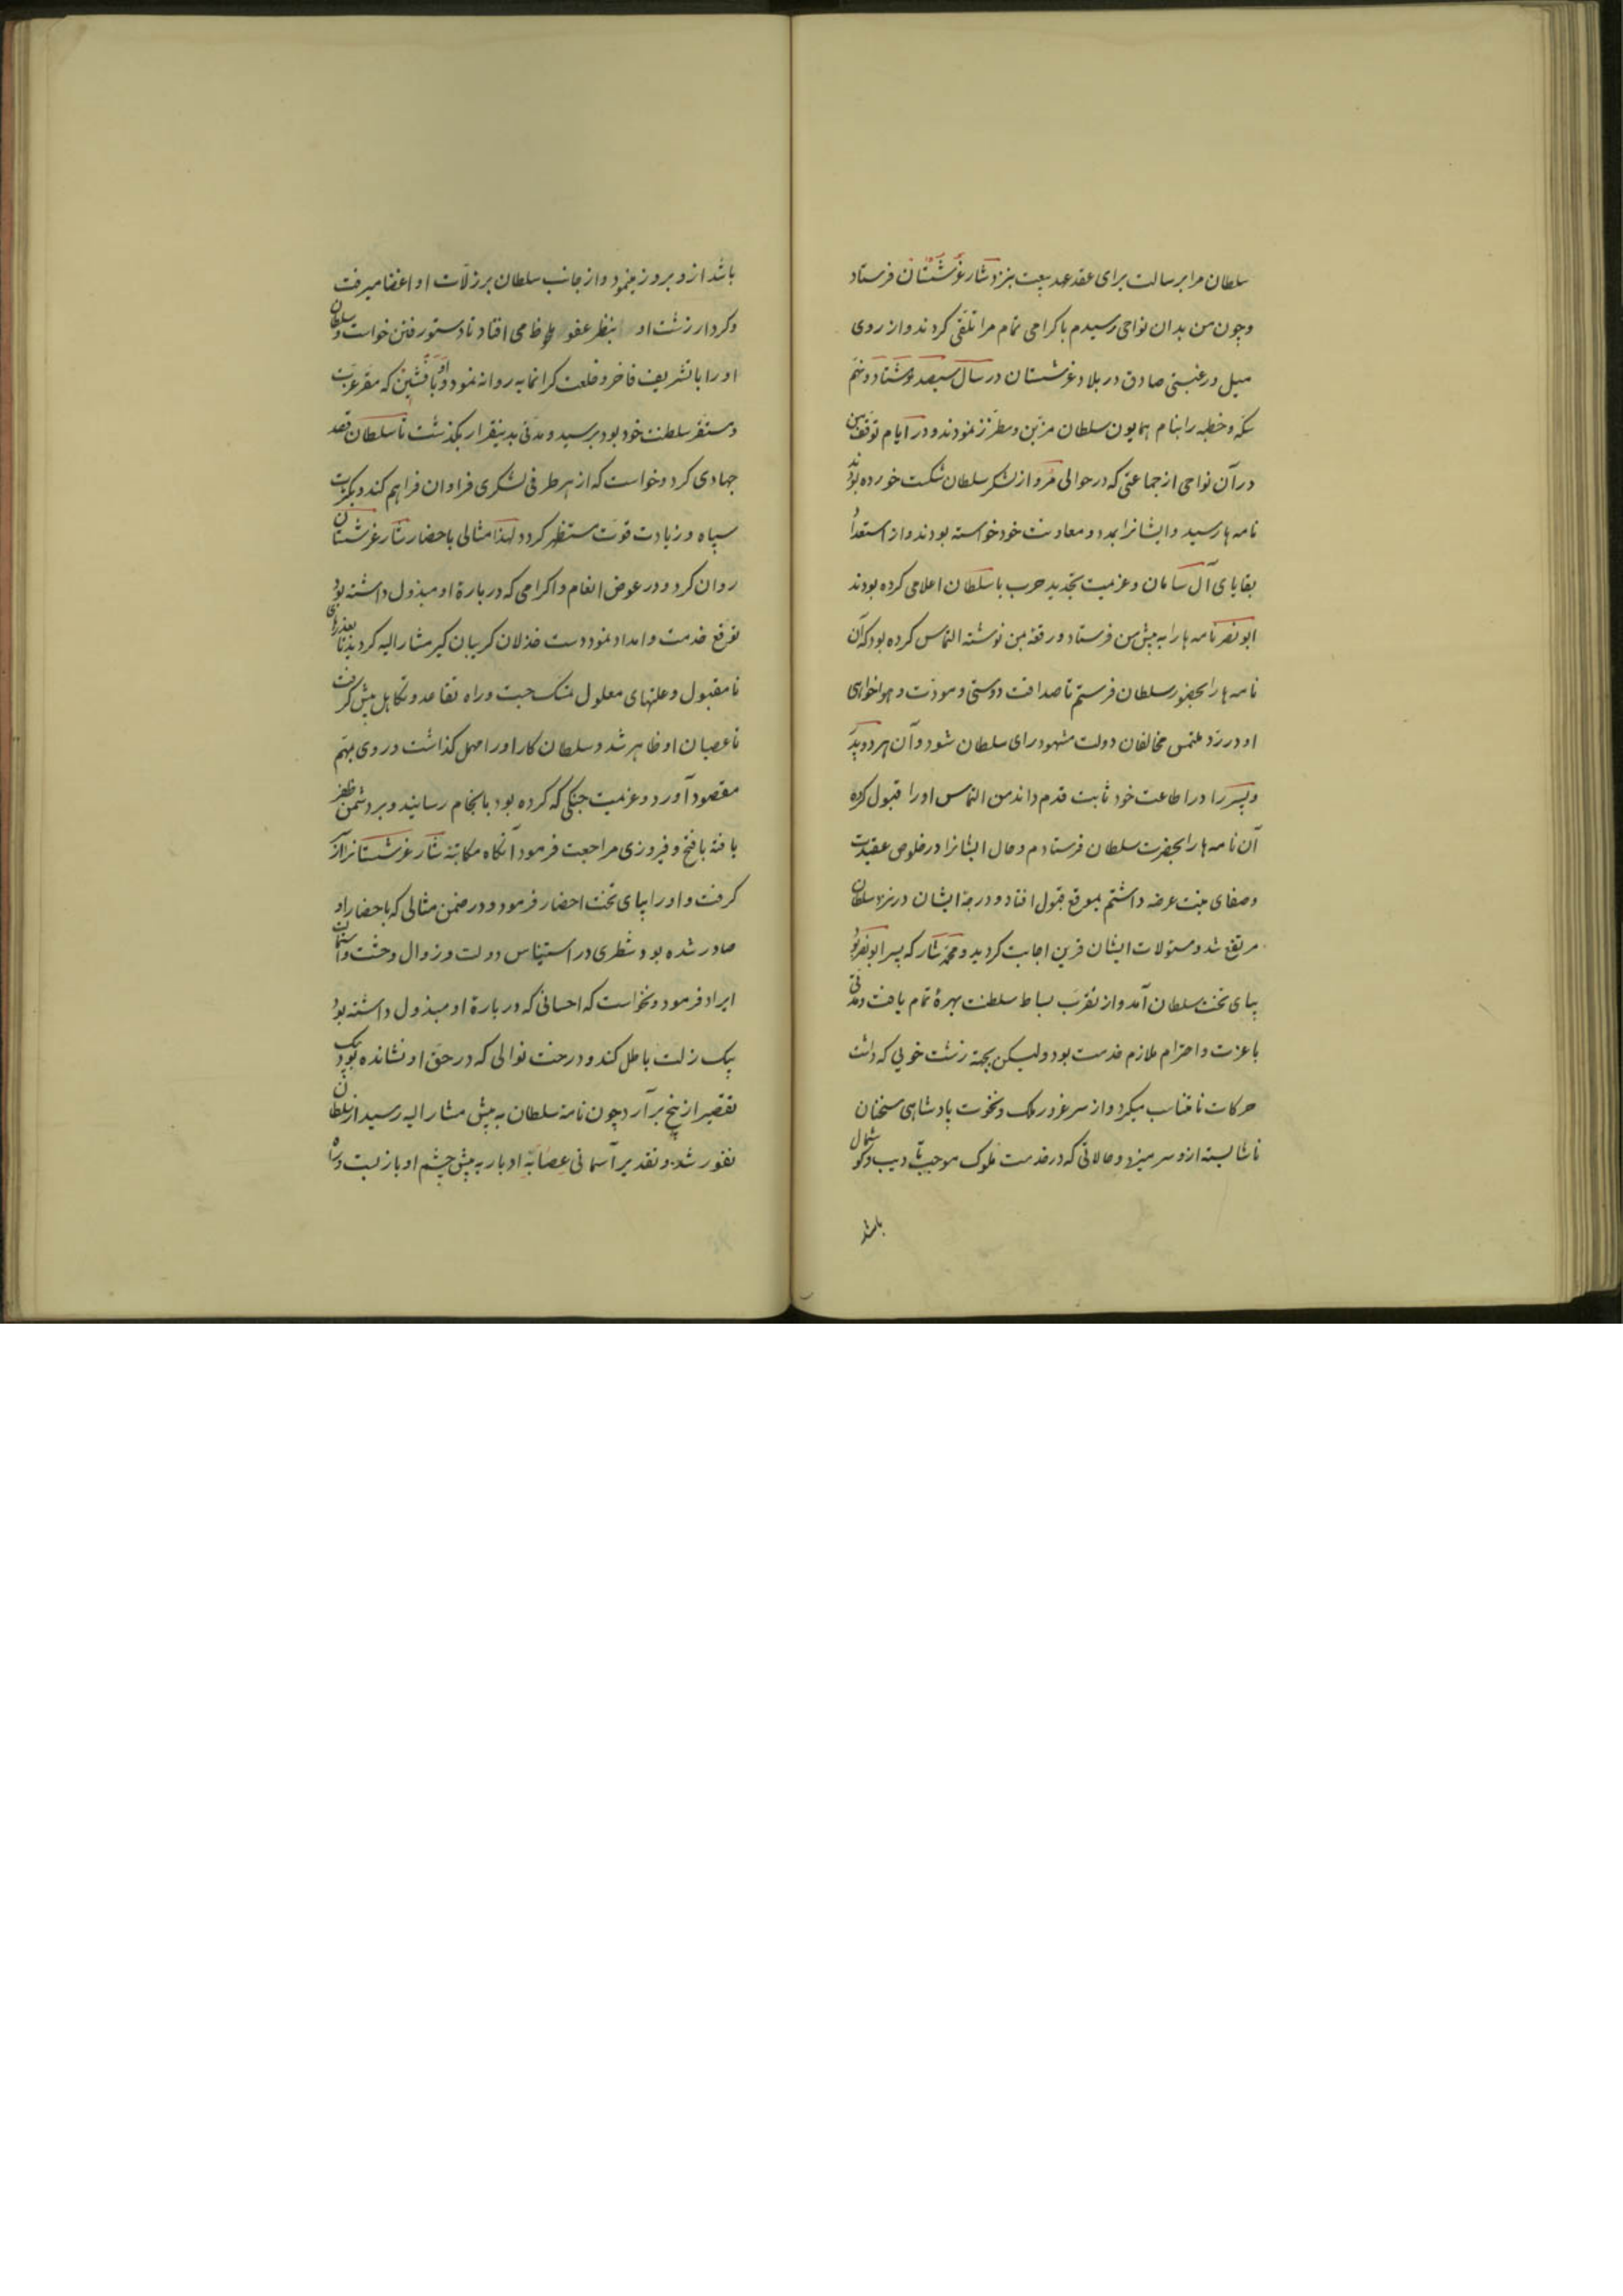 سلطان مرا برسالت برای عقد عهد بیعت بنزد شار غرشستان فرستاد
و چون من بدان نواحی رسیدم باکرامی تمام مرا تلقی کردند و از روی
میل و رغبتی صادق در بلاد غرشستان در سال سیصد و هشتاد و نهم
سکه و خطبه را بنام همایون سلطان مزین و مطرز نمودند و در ایام توقف من
در آن نواحی از جماعتی که در حوالی مرو از لشکر سلطان شکست خورده بودند
نامه ها رسید و ایشانرا بمدد و معاونت خود خواسته بودند و از استعداد
بقایای آل سامان و عزیمت تجدید حرب با سلطان اعلامی کرده بودند
ابو نصر نامه ها را به پیش من فرستاد و رقعه بمن نوشته التماس کرده بود که آن
نامه ها را بحضور سلطان فرستم تا صداقت دوستی و مودت و هواخواهی
او در رد ملتمس مخالفان دولت مشهود رای سلطان شود و آن هر دو پدر
و پسر را در اطاعت خود ثابت قدم داند من التماس او را قبول کرده
آن نامه ها را بحضرت سلطان فرستادم و حال ایشانرا در خلوص عقیدت
و صفای نیت عرضه داشتم بموقع قبول افتاد و درجه ایشان در نزد سلطان
مرتفع شد و مسئولات ایشان قرین اجابت گردید و محمد شار که پسر ابو نصر بود
بپای تخت سلطان آمد و از تقرب بساط سلطنت بهرهٔ تمام یافت و مدتی
با عزت و احترام ملازم خدمت بود ولیکن بجهة زشت خویی که داشت
حرکات نامناسب میکرد و از سر غرور ملک و نخوت پادشاهی سخنان
ناشایسته ازو سر میزد و حالاتی که در خدمت ملوک موجب تأدیب و گوشمال
باشد
باشد ازو بروز مینمود و از جانب سلطان بر زلات او اغضا میرفت
و کردار زشت او بنظر عفو ملحاظ می افتاد تا دستور رفتن خواست و سلطان
او را با تشریف فاخر و خلعت گرانمایه روانه نمود و او با فشین که مقر عزت
و مستقر سلطنت خود بود برسید و مدتی بدینقرار بگذشت تا سلطان قصد
جهادی کرد و خواست که از هر طرفی لشکری فراوان فراهم کند و بکثرت
سپاه و زیادت قوت مستظهر گردد لهذا مثالی باحضار شار غرشستان
روان کرد و در عوض انعام و اکرامی که در بارهٔ او مبذول داشته بود
توقع خدمت و امداد نمود دست خذلان گریبان گیر مشار الیه گردید تا بعذرهای
نامقبول و علتهای معلول تمسک جست و راه تقاعد و تکاهل پیش گرفت
تا عصیان او ظاهر شد و سلطان کار او را مهمل گذاشت و روی بمهم
مقصود آورد و عزیمت جنگی که کرده بود بانجام رسانید و بر دشمن ظفر
یافته با فتح و فیروزی مراجعت فرمود آنگاه مکاتبه شار غرشستانرا از سر
گرفت و او را بپای تخت احضار فرمود و در ضمن مثالی که باحضار او
صادر شده بود شطری در استیناس دولت و زوال وحشت و استمالت
ایراد فرمود و نخواست که احسانی که در بارهٔ او مبذول داشته بود
بیک زلت باطل کند و درخت نوالی که در حق او نشانده بود بیک
تقصیر از بیخ برآرد چون نامه سلطان به پیش مشار الیه رسید از سلطان
نفور شد و تقدیر آسمانی عصابه ادبار به پیش چشم او باز بست و راه